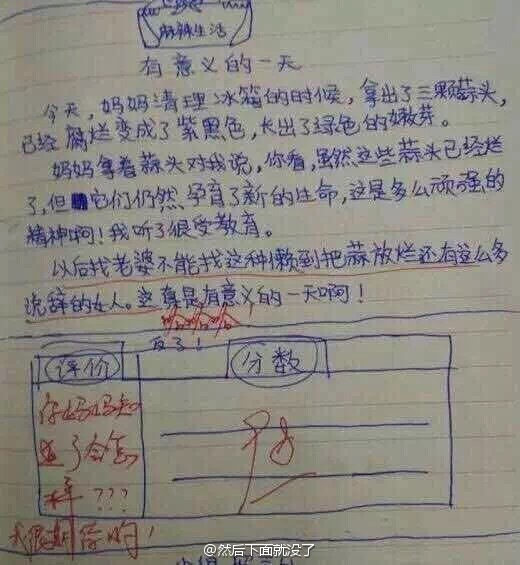 麻辣生活
有意义的一天
今天，妈妈清理冰箱的时候，拿出了三颗蒜头，
已经腐烂变成了紫黑色，长出了绿色的嫩芽。
妈妈拿着蒜头对我说，你看，虽然这些蒜头已经烂
了，但它们仍然孕育了新的生命，这是多么顽强的
精神啊！我听了很受教育。
以后找老婆不能找这种懒到把蒜放烂还有这么多
说辞的女人。这真是有意义的一天啊！
哈哈哈
反了！
评价
分数
你妈妈知
道了会怎
样？？？
我很期待哟！
@然后下面就没了